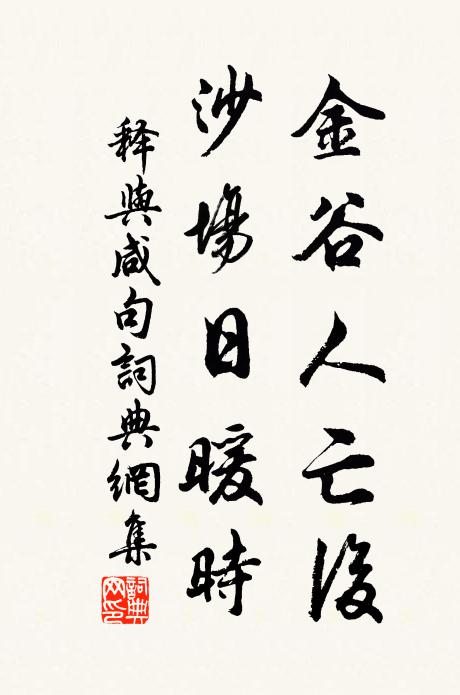 金谷人亡後
沙場日暖時
释與咸句詞典網集
詞典网印